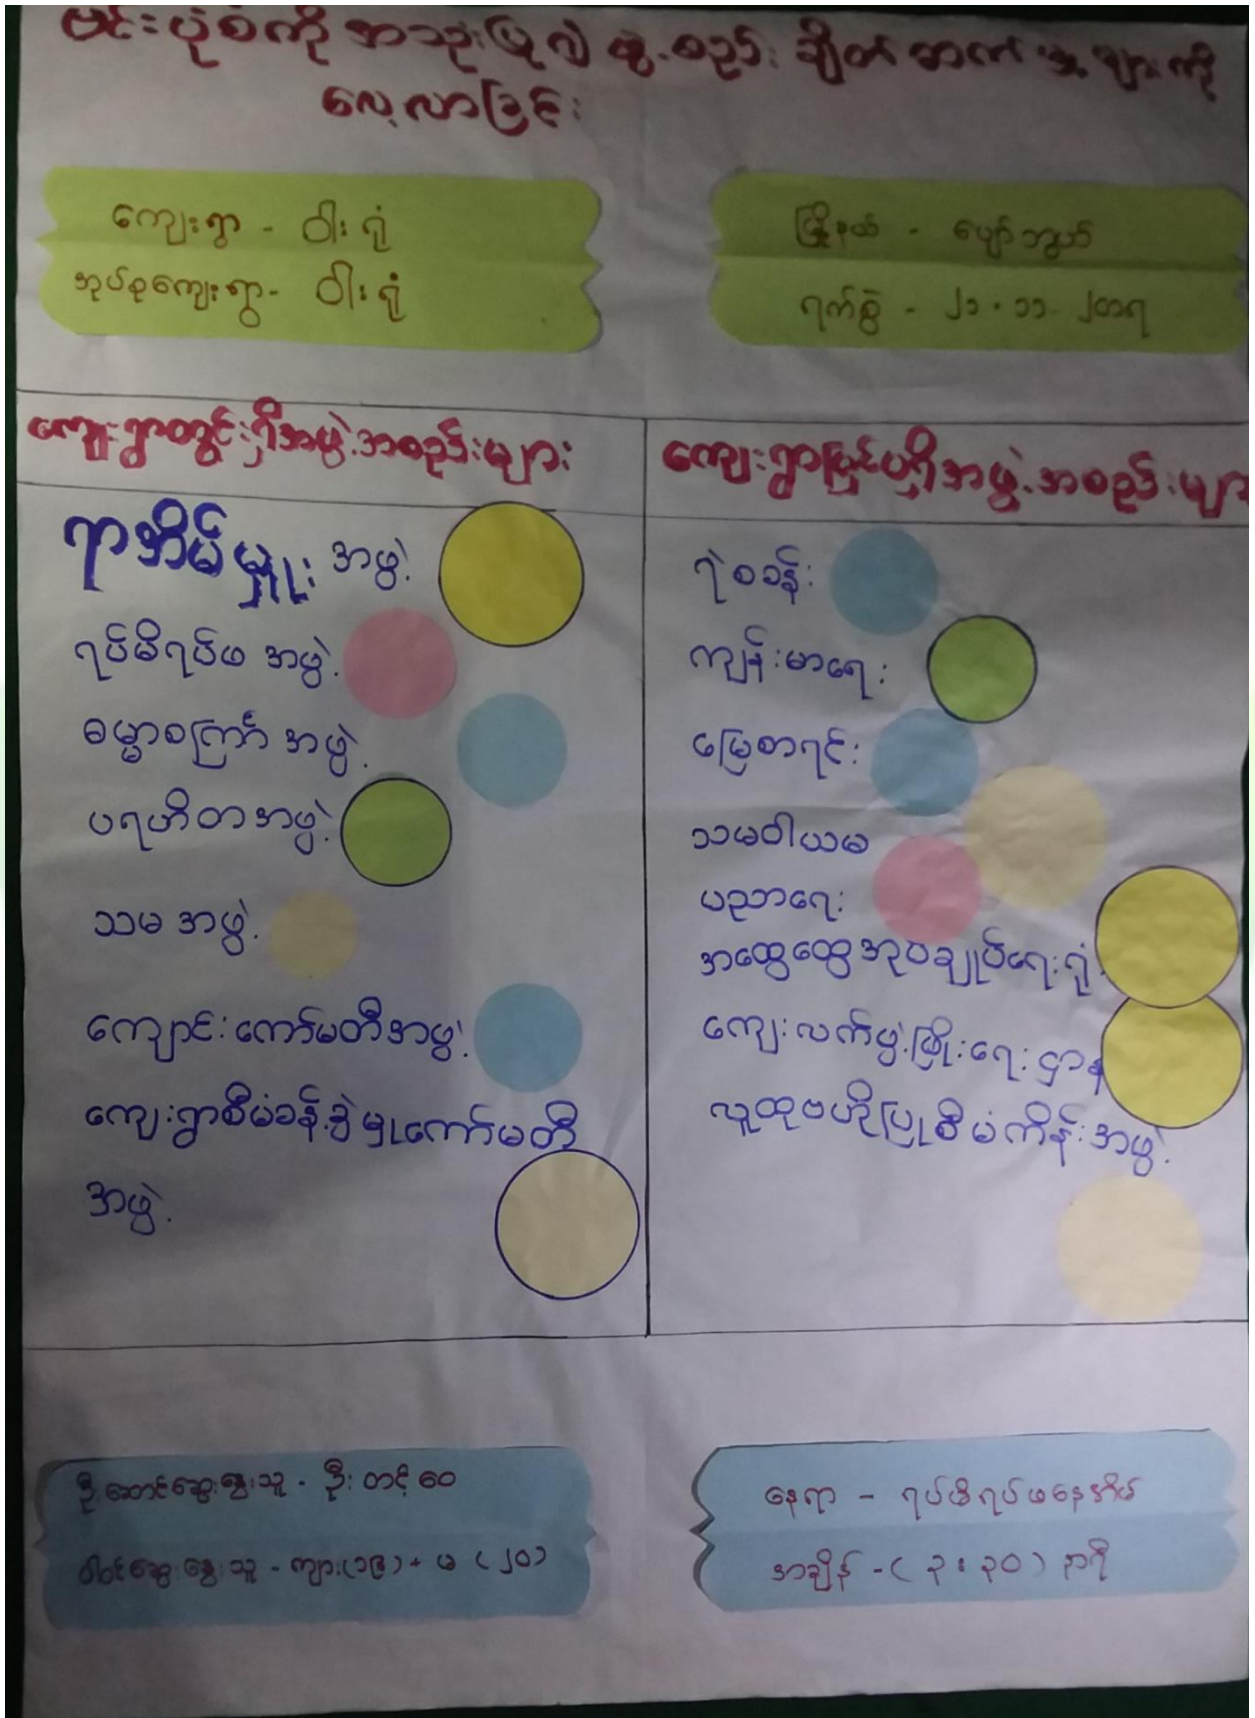 ဗင်းပုံစံကို အသုံးပြု၍ ဖွဲ့စည်း ချိတ်ဆက်မှု များကို
လေ့လာခြင်း
ကျေးရွာ - ဝါးရုံ
အုပ်စုကျေးရွာ- ဝါးရုံ
မြို့နယ် - ပျော်ဘွယ်
ရက်စွဲ - ၂၁.၁၁.၂၀၁၇
ကျေးရွာတွင်းရှိအဖွဲ့အစည်းများ
ရာအိမ်မှူး အဖွဲ့
ရပ်မိရပ်ဖ အဖွဲ့
ဓမ္မာစကြာ် အဖွဲ့
ပရဟိတအဖွဲ့
သမ အဖွဲ့
ကျောင်းကော်မတီအဖွဲ့
ကျေးရွာစီမံခန့်ခွဲမှုကော်မတီ
အဖွဲ့
ကျေးရွာပြင်ပရှိအဖွဲ့အစည်းများ
ရဲစခန်း
ကျန်းမာရေး
မြေစာရင်း
သမဝါယမ
ပညာရေး
အထွေထွေအုပ်ချုပ်ရေးရုံး
ကျေးလက်ဖွံ့ဖြိုးရေးဌာန
လူထုဗဟိုပြုစီမံကိန်းအဖွဲ့
ဦးဆောင်ဆွေးနွေးသူ - ဦးတင့်ဝေ
ပါဝင်ဆွေးနွေးသူ - ကျား(၁၉) + မ (၂၀)
နေရာ - ရပ်မိရပ်ဖနေအိမ်
အချိန် - ( ၃ : ၃၀ ) နာရီ